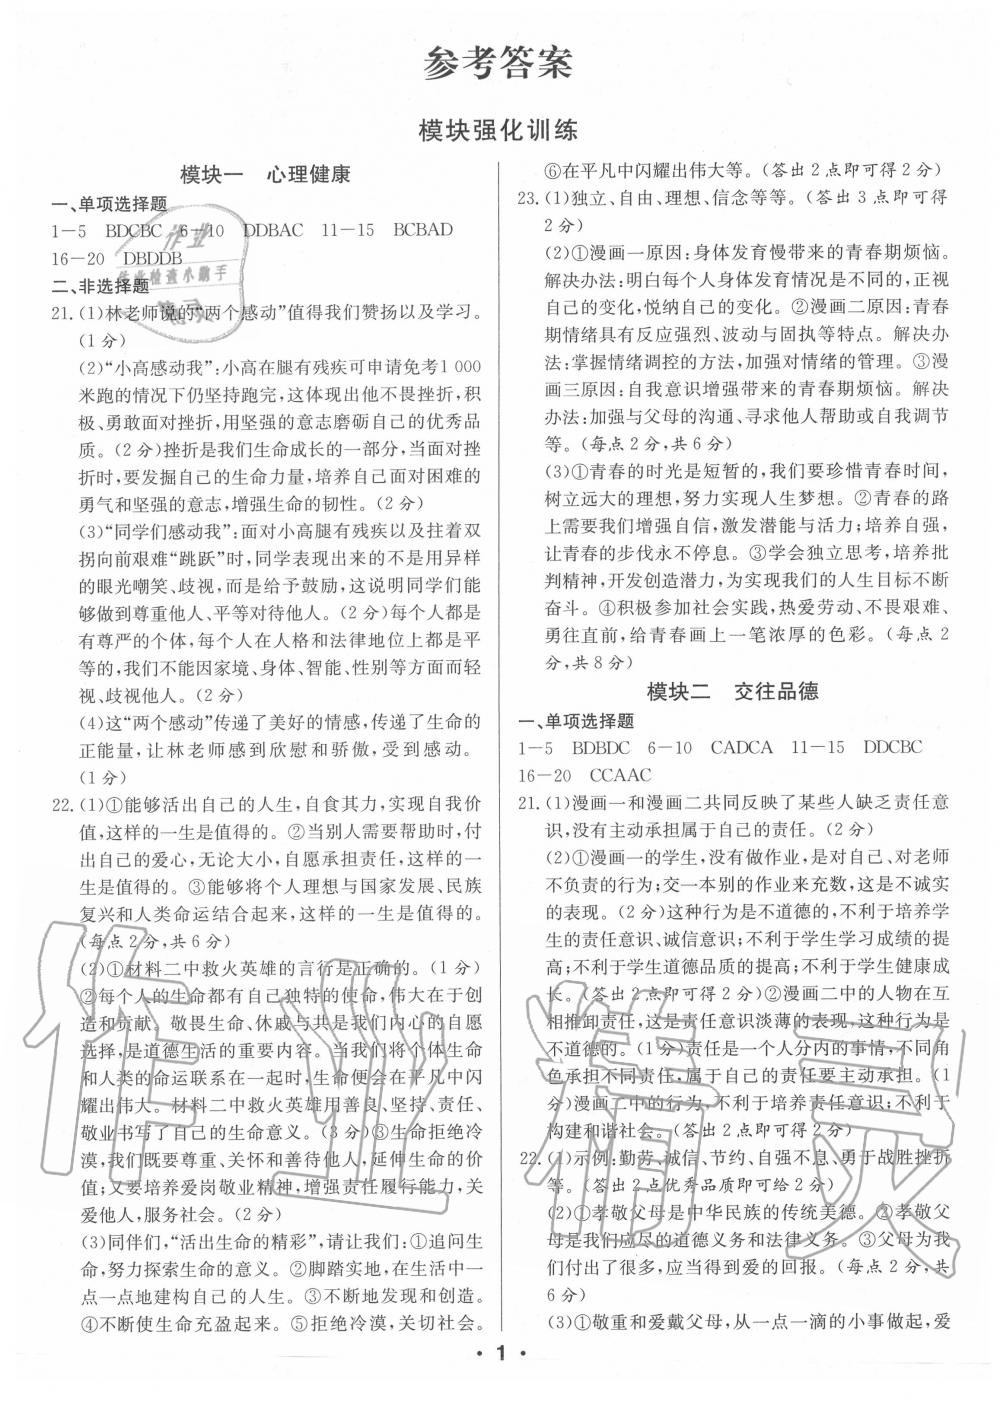 参考答案
模块强化训练
模块一　心理健康
一、单项选择题
1－5　BDCBC　6－10　DDBAC　11－15　BCBAD
16－20　DBDDB
二、非选择题
21. (1)林老师说的“两个感动”值得我们赞扬以及学习。
(1分)
(2)“小高感动我”:小高在腿有残疾可申请免考1 000
米跑的情况下仍坚持跑完,这体现出他不畏挫折,积
极、勇敢面对挫折,用坚强的意志磨砺自己的优秀品
质。(2分)挫折是我们生命成长的一部分,当面对挫
折时,要发掘自己的生命力量,培养自己面对困难的
勇气和坚强的意志,增强生命的韧性。(2分)
(3)“同学们感动我”:面对小高腿有残疾以及拄着双
拐向前艰难“跳跃”时,同学表现出来的不是用异样
的眼光嘲笑、歧视,而是给予鼓励,这说明同学们能
够做到尊重他人、平等对待他人。(2分)每个人都是
有尊严的个体,每个人在人格和法律地位上都是平
等的,我们不能因家境、身体、智能、性别等方面而轻
视、歧视他人。(2分)
(4)这“两个感动”传递了美好的情感,传递了生命的
正能量,让林老师感到欣慰和骄傲,受到感动。
(1分)
22. (1)①能够活出自己的人生,自食其力,实现自我价
值,这样的一生是值得的。②当别人需要帮助时,付
出自己的爱心,无论大小,自愿承担责任,这样的一
生是值得的。③能够将个人理想与国家发展、民族
复兴和人类命运结合起来,这样的一生是值得的。
(每点2分,共6分)
(2)①材料二中救火英雄的言行是正确的。(1分)
②每个人的生命都有自己独特的使命,伟大在于创
造和贡献。敬畏生命、休戚与共是我们内心的自愿
选择,是道德生活的重要内容。当我们将个体生命
和人类的命运联系在一起时,生命便会在平凡中闪
耀出伟大。材料二中救火英雄用善良、坚持、责任、
敬业书写了自己的生命意义。(3分)③生命拒绝冷
漠,我们既要尊重、关怀和善待他人,延伸生命的价
值;又要培养爱岗敬业精神,增强责任履行能力,关
爱他人,服务社会。(2分)
(3)同伴们,“活出生命的精彩”,请让我们:①追问生
命,努力探索生命的意义。②脚踏实地,在行动中一
点一点地建构自己的人生。③不断地发现和创造。
④不断使生命充盈起来。⑤拒绝冷漠,关切社会。
⑥在平凡中闪耀出伟大等。(答出2点即可得2分)
23. (1)独立、自由、理想、信念等等。(答出3点即可得
2分)
(2)①漫画一原因:身体发育慢带来的青春期烦恼。
解决办法:明白每个人身体发育情况是不同的,正视
自己的变化,悦纳自己的变化。②漫画二原因:青春
期情绪具有反应强烈、波动与固执等特点。解决办
法:掌握情绪调控的方法,加强对情绪的管理。③漫
画三原因:自我意识增强带来的青春期烦恼。解决
办法:加强与父母的沟通、寻求他人帮助或自我调节
等。(每点2分,共6分)
(3)①青春的时光是短暂的,我们要珍惜青春时间,
树立远大的理想,努力实现人生梦想。②青春的路
上需要我们增强自信,激发潜能与活力;培养自强,
让青春的步伐永不停息。③学会独立思考,培养批
判精神,开发创造潜力,为实现我们的人生目标不断
奋斗。④积极参加社会实践,热爱劳动、不畏艰难、
勇往直前,给青春画上一笔浓厚的色彩。(每点2
分,共8分)
模块二　交往品德
一、单项选择题
1－5　BDBDC　6－10　CADCA　11－15　DDCBC
16－20　CCAAC
21. (1)漫画一和漫画二共同反映了某些人缺乏责任意
识,没有主动承担属于自己的责任。(2分)
(2)①漫画一的学生,没有做作业,是对自己、对老师
不负责的行为;交一本别的作业来充数,这是不诚实
的表现。(2分)这种行为是不道德的,不利于培养学
生的责任意识、诚信意识;不利于学生学习成绩的提
高;不利于学生道德品质的提高;不利于学生健康成
长。(答出2点即可得2分)②漫画二中的人物在互
相推卸责任,这是责任意识淡薄的表现,这种行为是
不道德的。(1分)责任是一个人分内的事情,不同角
色承担不同责任,属于自己的责任要主动承担。(1
分)漫画二中的行为,不利于培养责任意识;不利于
构建和谐社会。(答出2点即可得2分)
22. (1)示例:勤劳、诚信、节约、自强不息、勇于战胜挫折
等。(答出2点优秀品质即可给2分)
(2)①孝敬父母是中华民族的传统美德。②孝敬父
母是我们应尽的道德义务和法律义务。③父母为我
们付出了很多,应当得到爱的回报。(每点2分,共
6分)
(3)①敬重和爱戴父母,从一点一滴的小事做起,爱
· 1 ·
作业
作业检查小助手
精灵
作业精灵